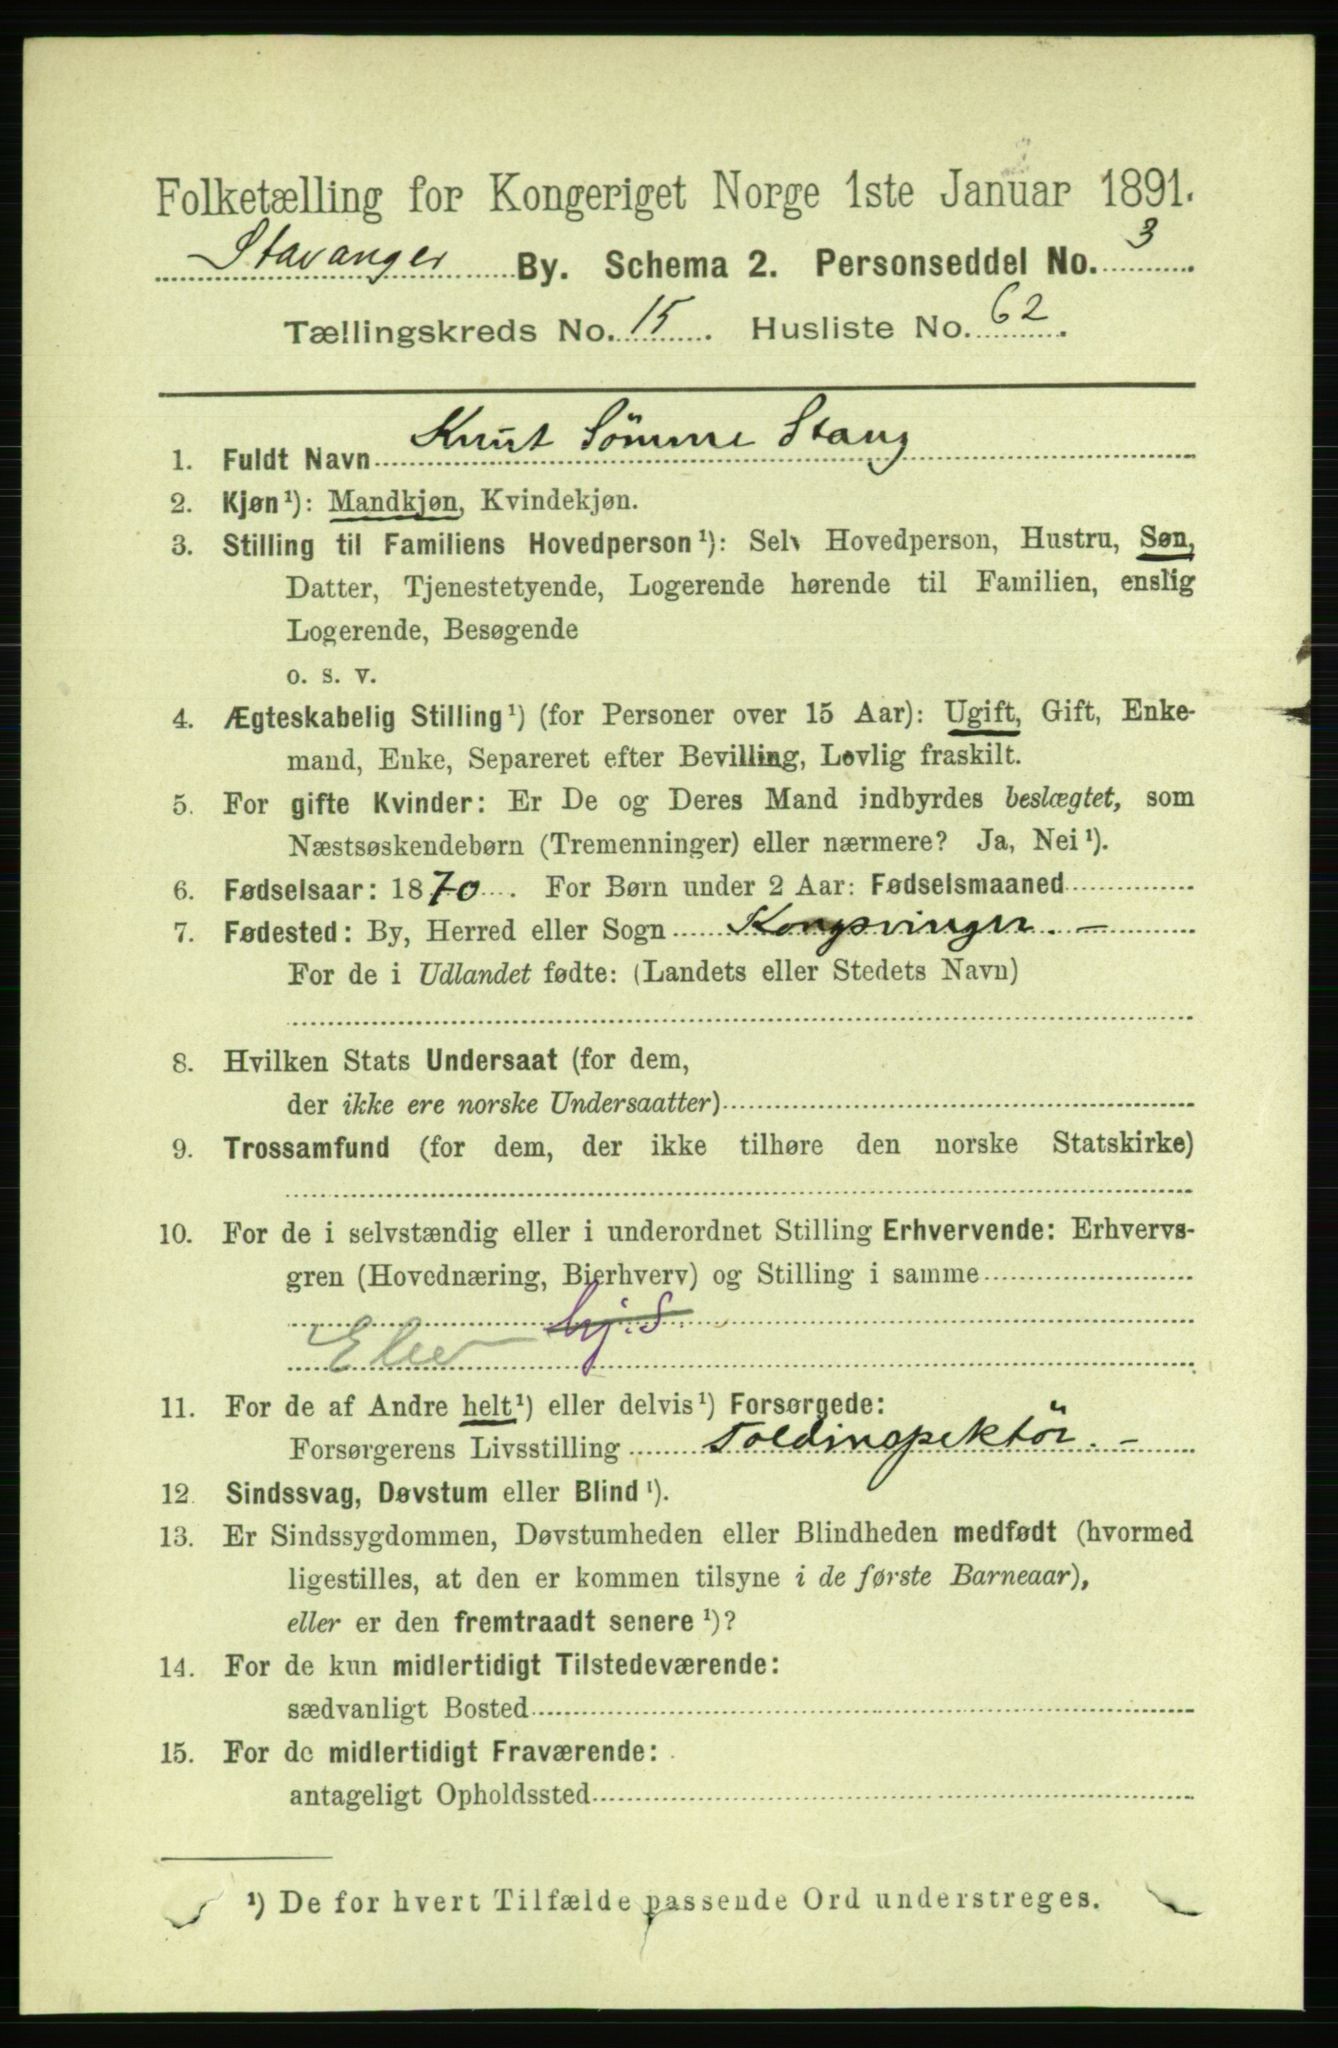 Folketælling for Kongeriget Norge 1ste Januar 1891.
Stavanger By. Schema 2. Personseddel No. 3
Tællingskreds No. 15. Husliste No. 62.
1. Fuldt Navn Knut Sömme Stang
2. Kjøn¹): Mandkjøn, Kvindekjøn.
3. Stilling til Familiens Hovedperson¹): Selv Hovedperson, Hustru, Søn,
Datter, Tjenestetyende, Logerende hørende til Familien, enslig
Logerende, Besøgende
o. s. v.
4. Ægteskabelig Stilling¹) (for Personer over 15 Aar): Ugift, Gift, Enke-
mand, Enke, Separeret efter Bevilling, Lovlig fraskilt.
5. For gifte Kvinder: Er De og Deres Mand indbyrdes beslægtet, som
Næstsøskendebørn (Tremenninger) eller nærmere? Ja, Nei¹).
6. Fødselsaar: 1870. For Børn under 2 Aar: Fødselsmaaned
7. Fødested: By, Herred eller Sogn Kongsvinger. –
For de i Udlandet fødte: (Landets eller Stedets Navn)
8. Hvilken Stats Undersaat (for dem,
der ikke ere norske Undersaatter)
9. Trossamfund (for dem, der ikke tilhøre den norske Statskirke)
10. For de i selvstændig eller i underordnet Stilling Erhvervende: Erhvervs-
gren (Hovednæring, Bierhverv) og Stilling i samme
hj. S.
Elev
11. For de af Andre helt¹) eller delvis¹) Forsørgede:
Forsørgerens Livsstilling Toldinspektör. –
12. Sindssvag, Døvstum eller Blind¹).
13. Er Sindssygdommen, Døvstumheden eller Blindheden medfødt (hvormed
ligestilles, at den er kommen tilsyne i de første Barneaar),
eller er den fremtraadt senere¹)?
14. For de kun midlertidigt Tilstedeværende:
sædvanligt Bosted
15. For de midlertidigt Fraværende:
antageligt Opholdssted
¹) De for hvert Tilfælde passende Ord understreges.